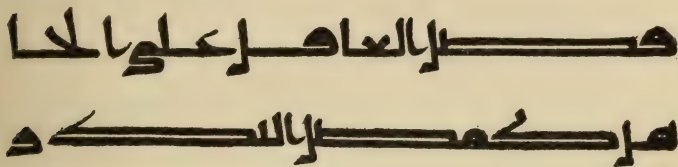 فضل العاقل على الجا
هل كفضل